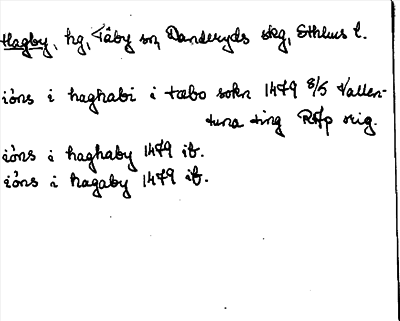 Hagby, hg, Täby sn, Danderyds skg, Sthlms l.
iöns i haghabi i tæbo sokn 1479 8/5 Vallen-
tuna ting RAp orig.
iöns i haghaby 1479 ib.
iöns i hagaby 1479 ib.